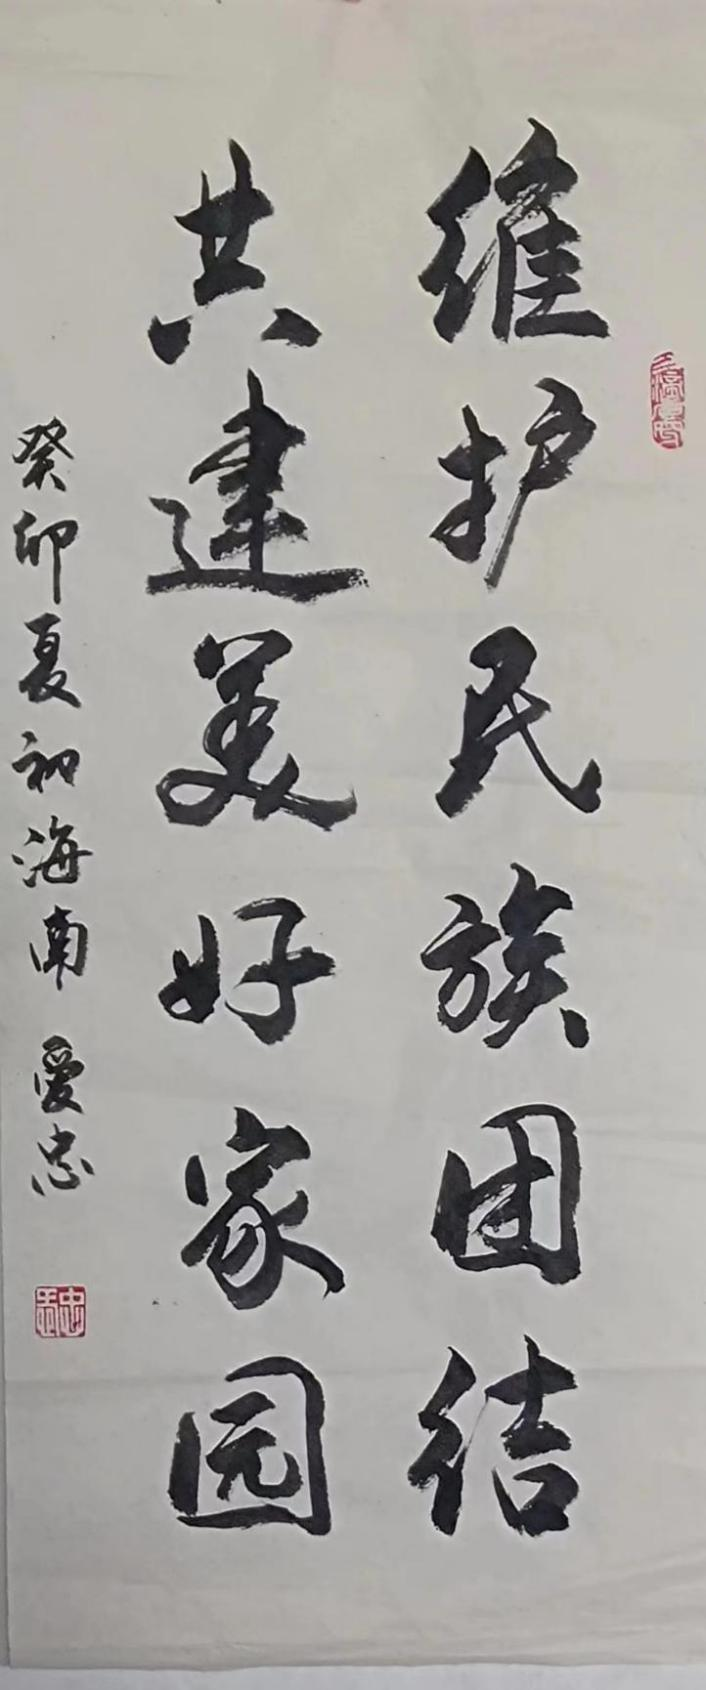 维护民族团结
共建美好家园
癸卯夏初海南 爱忠